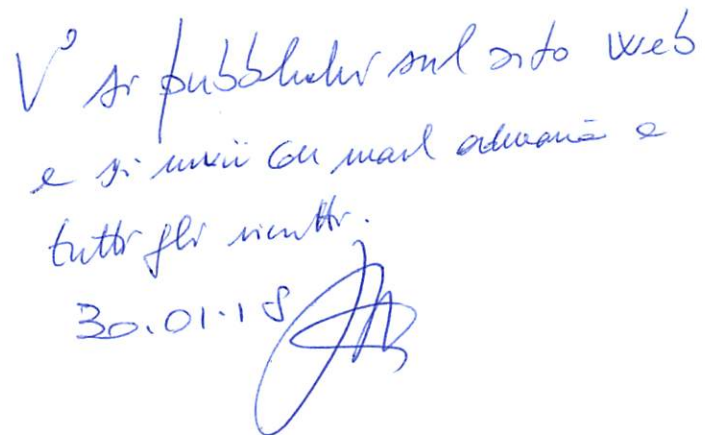 V° si pubblichi sul sito web
e si invii con mail a
tutti gli iscritti.
30.01.18